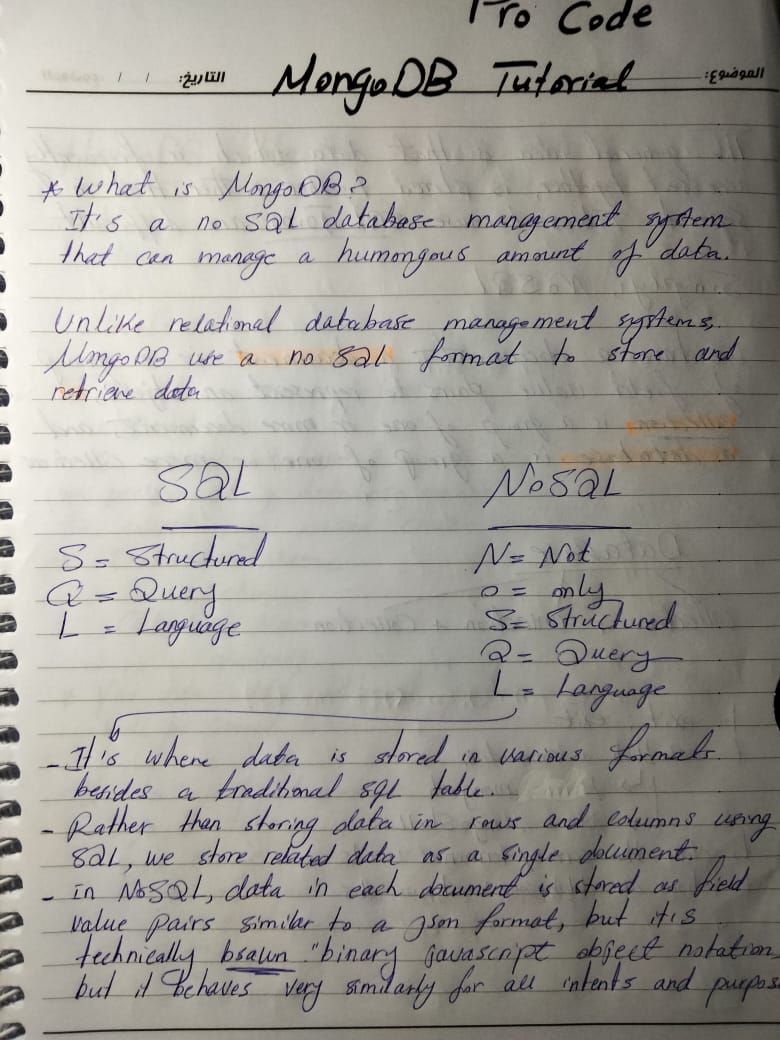 Pro Code
التاريخ: / / MongoDB Tutorial الموضوع:
* What is MongoDB?
It's a no SQL database management system
that can manage a humongous amount of data.
Unlike relational database management systems,
MongoDB use a no SQL format to store and
retrieve data
SQL
S = Structured
Q = Query
L = Language
NoSQL
N = Not
o = only
S = Structured
Q = Query
L = Language
- It's where data is stored in various formats
besides a traditional sql table.
- Rather than storing data in rows and columns using
SQL, we store related data as a single document.
- in NoSQL, data in each document is stored as field
value pairs similar to a json format, but it is
technically bsawn "binary javascript object notation
but it behaves very similarly for all intents and purpos